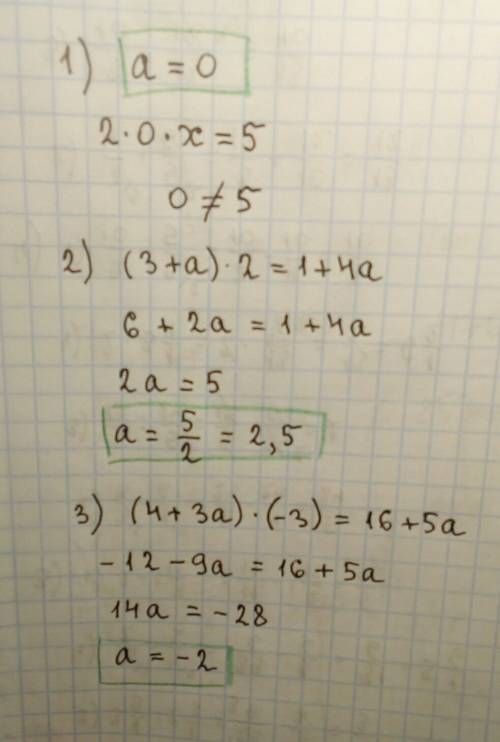 1) a = 0
2·0·x = 5
0 ≠ 5
2) (3+a)·2 = 1+4a
6 + 2a = 1+4a
2a = 5
a = 5/2 = 2,5
3) (4+3a)·(-3) = 16+5a
-12-9a = 16+5a
14a = -28
a = -2